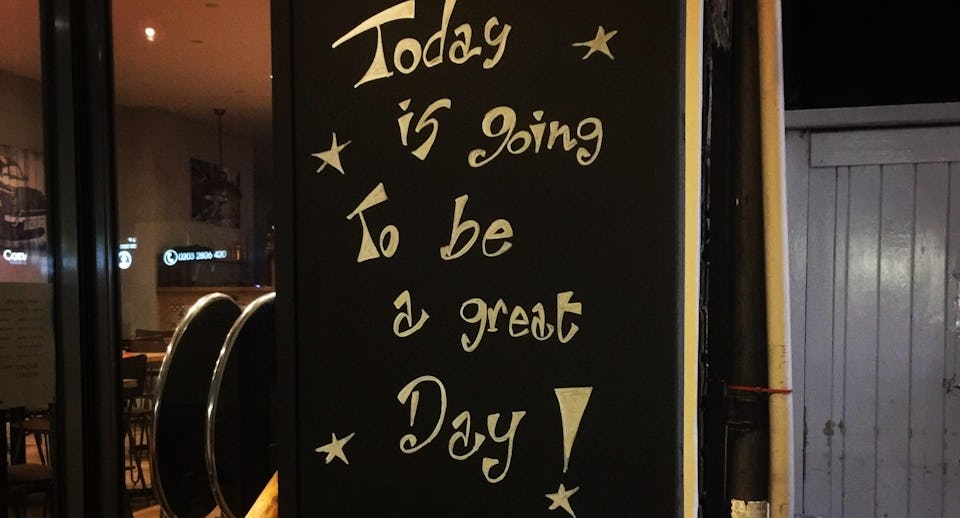 Today
is going
To be
a great
Day!
Con
0203 2806 420